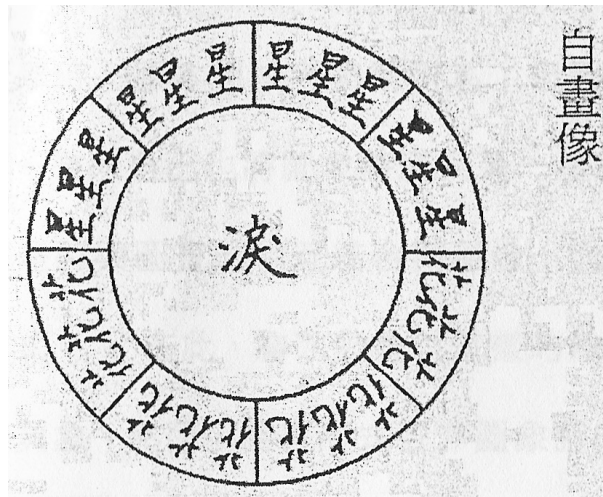 自畫像
星星星
星星星
星星星
星星星
淚
花花花
花花花
花花花
花花花